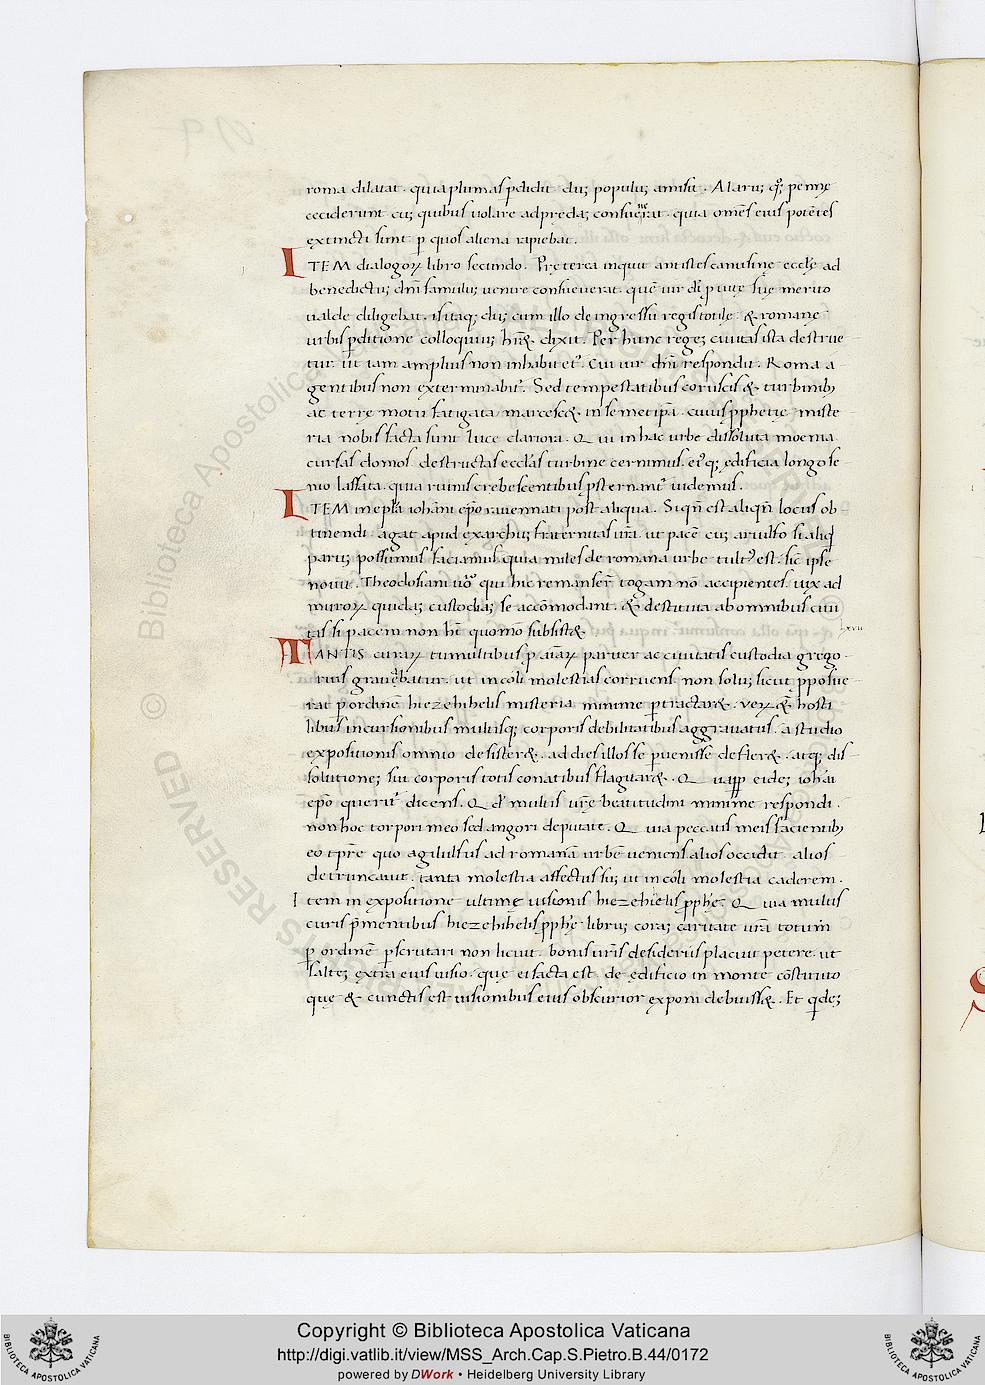 roma dilatat. quia plumas pdidit dũ populũ amisit. Alarũ qq; pennę
ceciderunt cũ quibus uolare ad prędã consueuerat. quia omẽs eius potẽtes
extincti sunt p quos aliena rapiebat.
ITEM dialogoꝝ libro secundo. Pręterea inquit antistes canusinę ecclę ad
benedictũ dñi famulũ uenire consueuerat. quẽ uir dĩ p uitę suę merito
ualde diligebat. is itaq; dũ cum illo de ingressu regis totilę & romanę
urbis pditione colloquiũ hr̃&. dixit. Per hunc regẽ ciuitas ista destrue
tur. ut iam amplius non inhabit&ʳ. Cui uir dñi respondit. Roma a
gentibus non exterminabitʳ. Sed tempestatibus coruscis & turbinib;
ac terrę motu fatigata marcesc& in semetipsã. cuius pphetię miste
ria nobis facta sunt luce clariora. Qui in hac urbe dissoluta moenia.
euersas domos. destructas ecclãs turbine cernimus. eiꝰq; ędificia longo se
nio lassata. quia ruinis crebescentibus psternantʳ uidemus.
ITEM in epľa iohãni epõ rauennati post aliqua. Siqd̃ est aliqd̃ locus ob
tinendi agat apud exarchũ fraternitas ur̃a. ut pacẽ cũ ariulfo si aliq̃
parũ possumus faciamus. quia miles de romana urbe tultꝰ est. sic ipse
nouit. Theodosiani uõ qui hic remanserꝭ rogam nõ accipientes. uix ad
muroꝝ quidẽ custodiã se accõmodant. & destituta ab omnibus ciui
tas si pacem non ht̃ quomõ subsist&
lxvii
TANTIS curaꝝ tumultibus p aĩaꝝ pariter ac ciuitatis custodia grego
rius grauabatur. ut incoli molestias corruens. non solũ sicut pposue
rat p ordinẽ hiezehihelis misteria minime ptractar&. ueꝝ &iã hosti
libus incursionibus multisq; corporis debilitatibus aggrauatus. a studio
expositionis omnino desister&. ad dies illos se puenisse defler&. atq; dis
solutionẽ sui corporis totis conatibus flagitar&. Qua pp eidẽ iohãi
epõ queritʳ dicens. Qd̃ multis ur̃ę beatitudini minime respondi.
non hoc torpori meo sed angori deputate. Quia peccatis meis facientib;
eo tp̃re quo agilulfus ad romanã urbẽ ueniens alios occidit. alios
detruncauit. tanta molestia affectus sũ ut in coli molestia caderem.
Item in expositione ultimę uisionis hiezehielis pphę̃. Quia multis
curis pmentibus hiezehihelis pphę̃ librũ corã caritate ur̃a totum
p ordinẽ pscrutari non licuit. bonis ur̃is desideriis placuit petere. ut
saltẽ extrema eius uisio. quę ei facta est de ędificio in monte cõstituto
quę & cunctis est uisionibus eius obscurior exponi debuiss&. Et qdẽ
Copyright © Biblioteca Apostolica Vaticana
http://digi.vatlib.it/view/MSS_Arch.Cap.S.Pietro.B.44/0172
powered by DWork • Heidelberg University Library